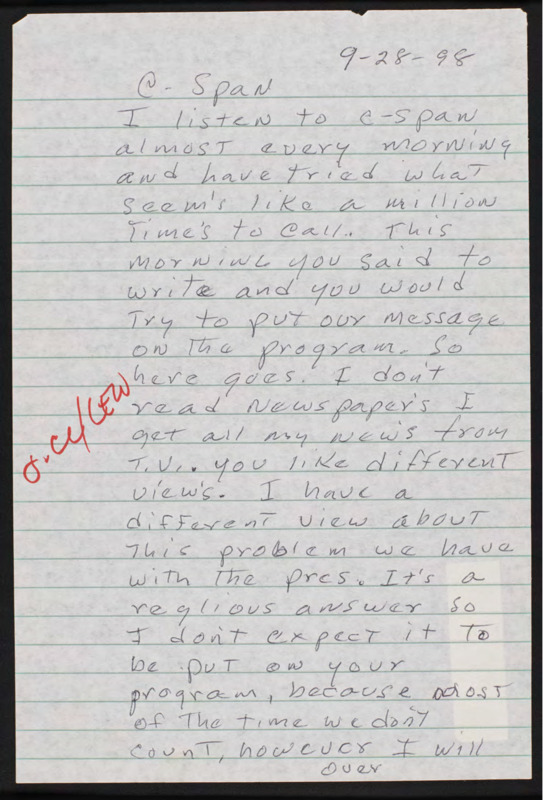 9-28-98
C-Span
I listen to C-Span
almost every morning
and have tried what
seem's like a million
Time's to call. This
morning you said to
write and you would
Try to put our message
on The program. So
here goes. I don't
read Newspaper's I
get all my new's from
T.V.. you like different
view's. I have a
different view about
This problem we have
with The pres. It's a
reglious answer so
I don't expect it To
be put on your
program, because most
of The time we don't
count, however I will
over